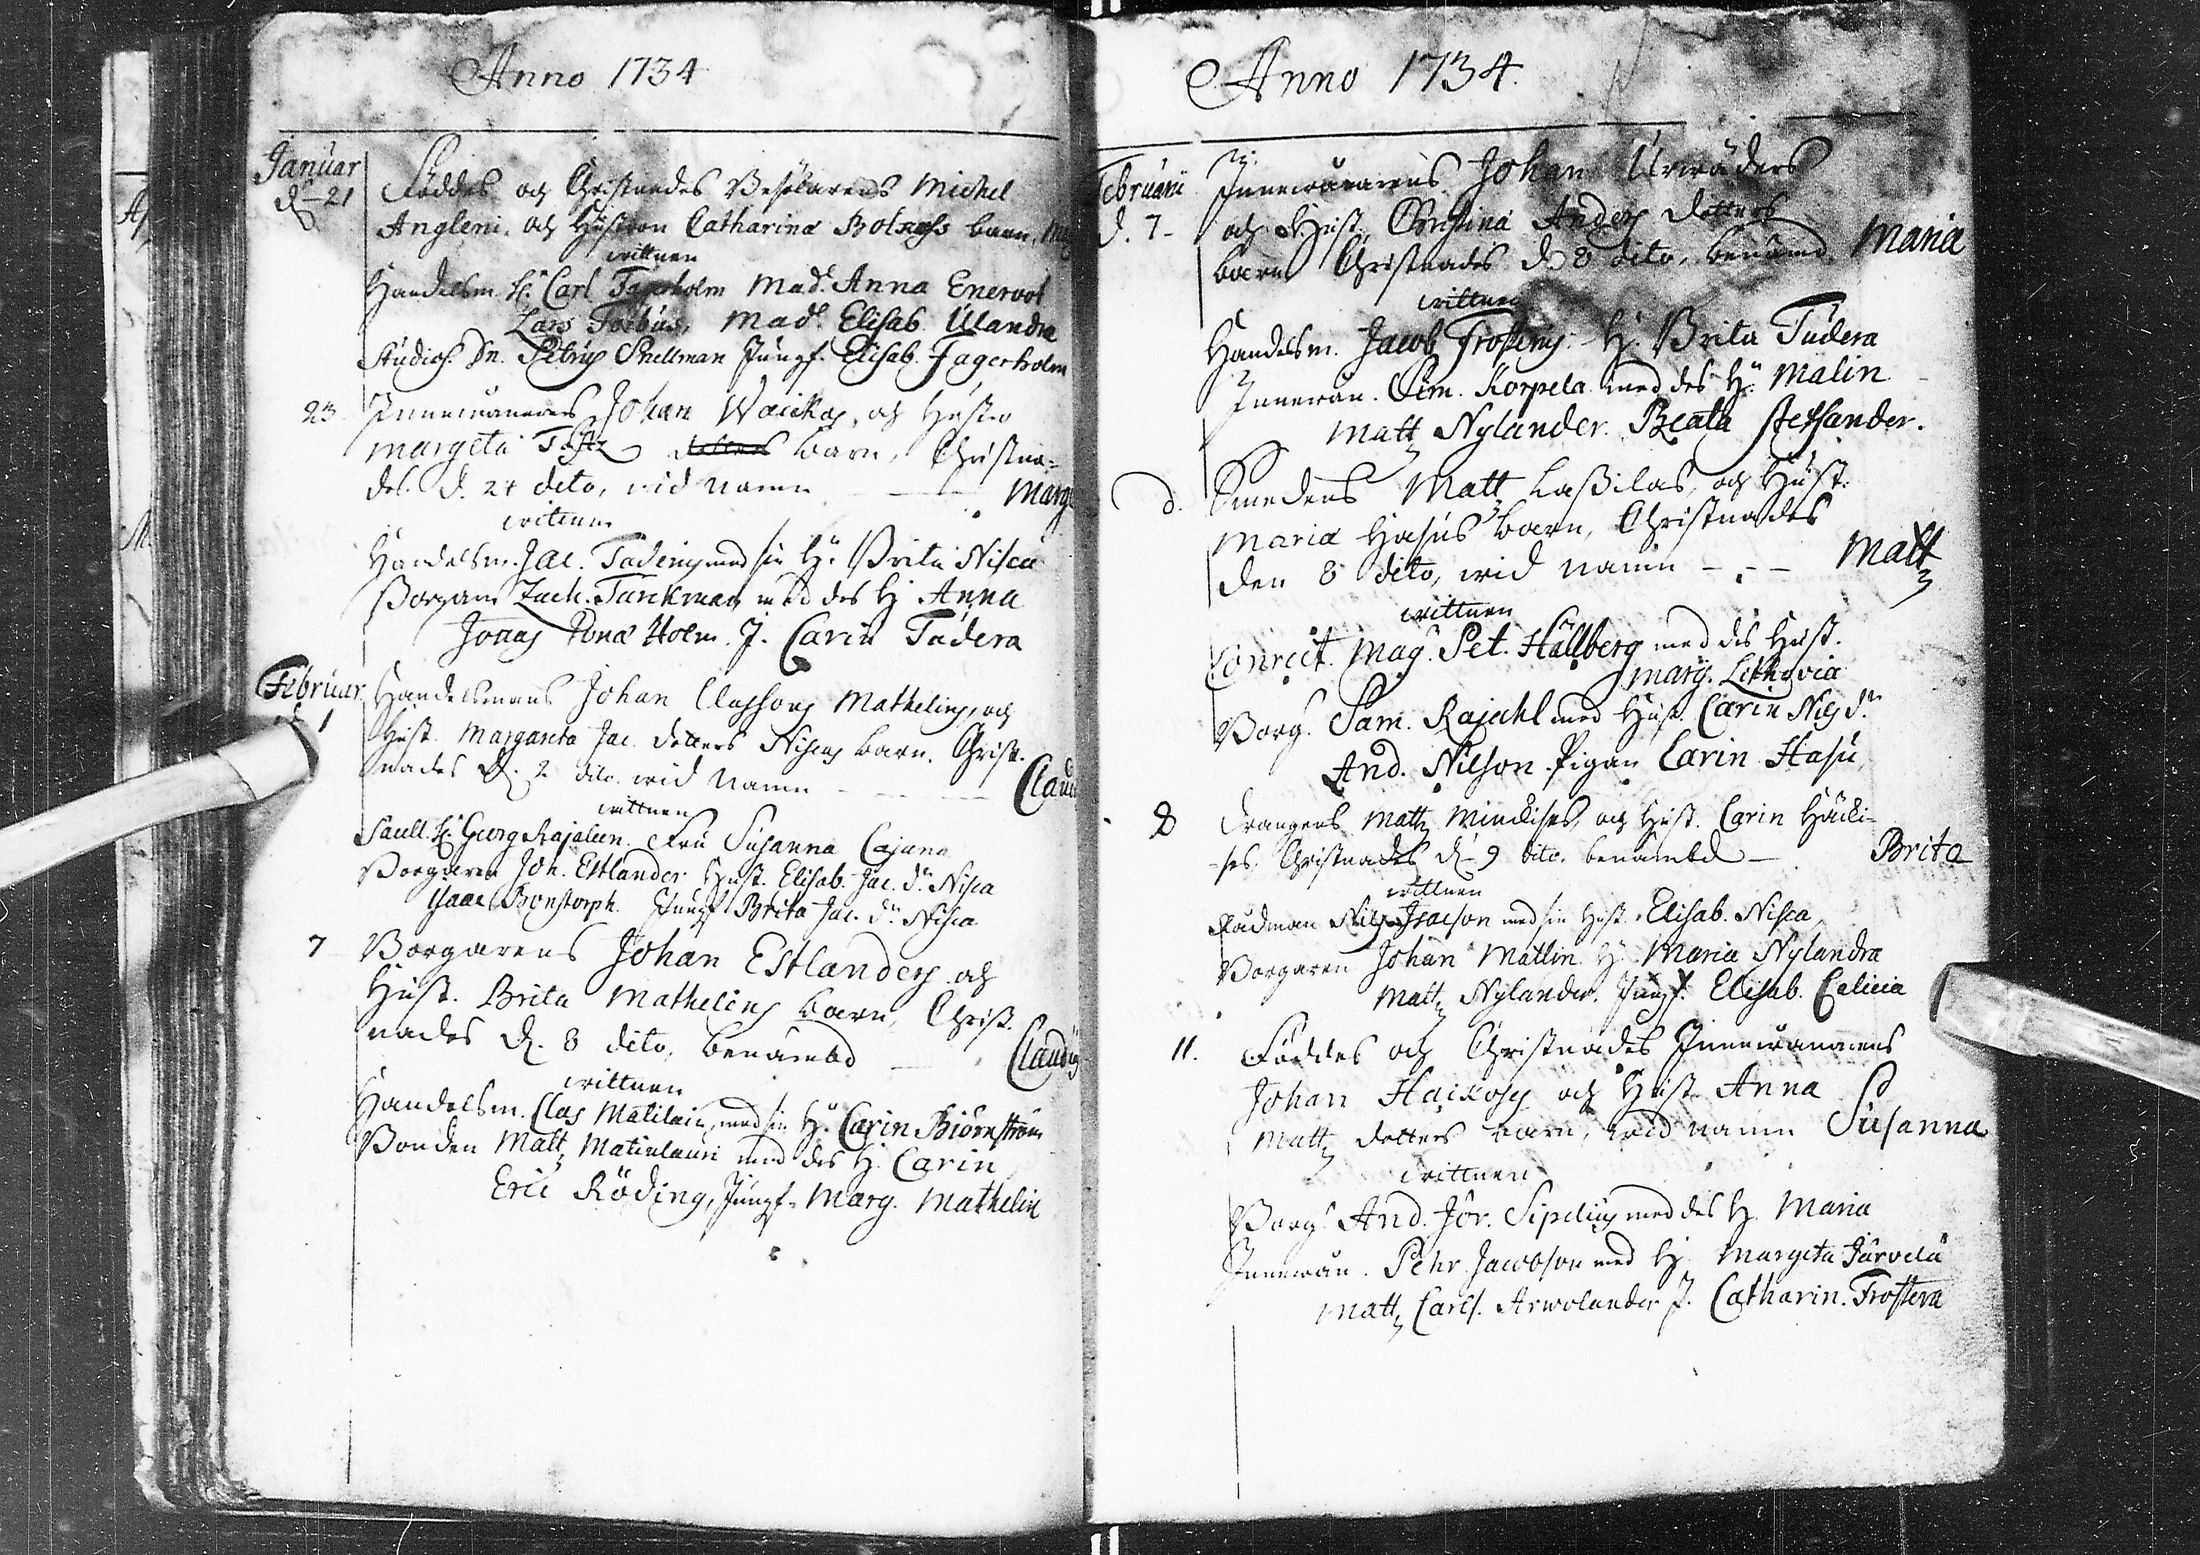 Anno 1734
Januar
d. 21 Föddes och Christnades Besökarens Michel
Angleni, och Hustron Catharina barn,
wittnen
Handelsm. H. Carl Fagerholm Mad. Anna Eneroot
Lars Forbus, Mad. Elisab. Ulandra
Studios. Dn. Petrus Snellman Jungf. Elisab. Fagerholm
23 Innewånarens Johan Waickos, och Hustro
Margeta barn, Christna=
des d. 24 dito, wid namn Marg
wittnen
Handelsm. Jac. med sin H. Brita Nisca
Borgaren Zach. Turckman med des H. Anna
Jonas Holm. J. Carin Tudera
Februar
1 Handelsmans Johan Classons Mathelins, och
Hust. Margareta Jac. dotters Niscas barn. Christ-
nades d. 2 dito. wid namn Claud
wittnen
H. Georg Rajalen. Fru Susanna Cajana
Borgaren Joh. Estlander Hust. Elisab. Jac. dr. Nisca
Isaac Bonstorph. Jungf. Brita Jac. dr. Nisca
7 Borgarens Johan Estlanders och
Hust. Brita Mathelins barn, Christ-
nades d. 8 dito, benämbd Claudius
wittnen
Handelsm. Clas Matilain, med sin H. Carin Biörnström
Bonden Matts Matinlauri med des H. Carin
Eric Röding, Jungf. Marg. Mathelin
Anno 1734.
Februarii
d. 7 Innewånarens Johan Urwäders
och Hust. Christina Anders dotters
barn Christnades d. 8 dito, benämd Maria
wittnen
Handelsm. Jacob Frosterus H. Brita Tudera
Innewån. Sim. Korpela med des H. Malin
Matts Nylander. Beata
d. Smedens Matts Laßilas, och Hust.
Maria Hasus barn, Christnades
den 8 dito, wid namn - - - Matts
wittnen
Conrect. Mag. Pet. Hällberg med des Hust.
Marg. Lithovia
Borg. Sam. Rajahl med Hust. Carin Nils dr.
And. Nilson Pigan Carin Hasu,
8 Drängens Matts och Hust. Carin
Christnades d. 9 dito. benämbd - Brita
wittnen
Rådman Nils Isacson med sin Hust. Elisab. Nisca,
Borgaren Johan Matlin H. Maria Nylandra
Matts Nylander. Jungf. Elisab. Calicia
11. Föddes och Christnades Innewånarens
Johan Haickos och Hust. Anna
Matts dotters barn, wid namn Susanna
wittnen
Borg. And. Jör. Sipelius med des H. Maria
Innewån. Pehr Jacobson med H. Margeta Järvelä
Matts Carls. Arwolander J. Catharin. Frostera